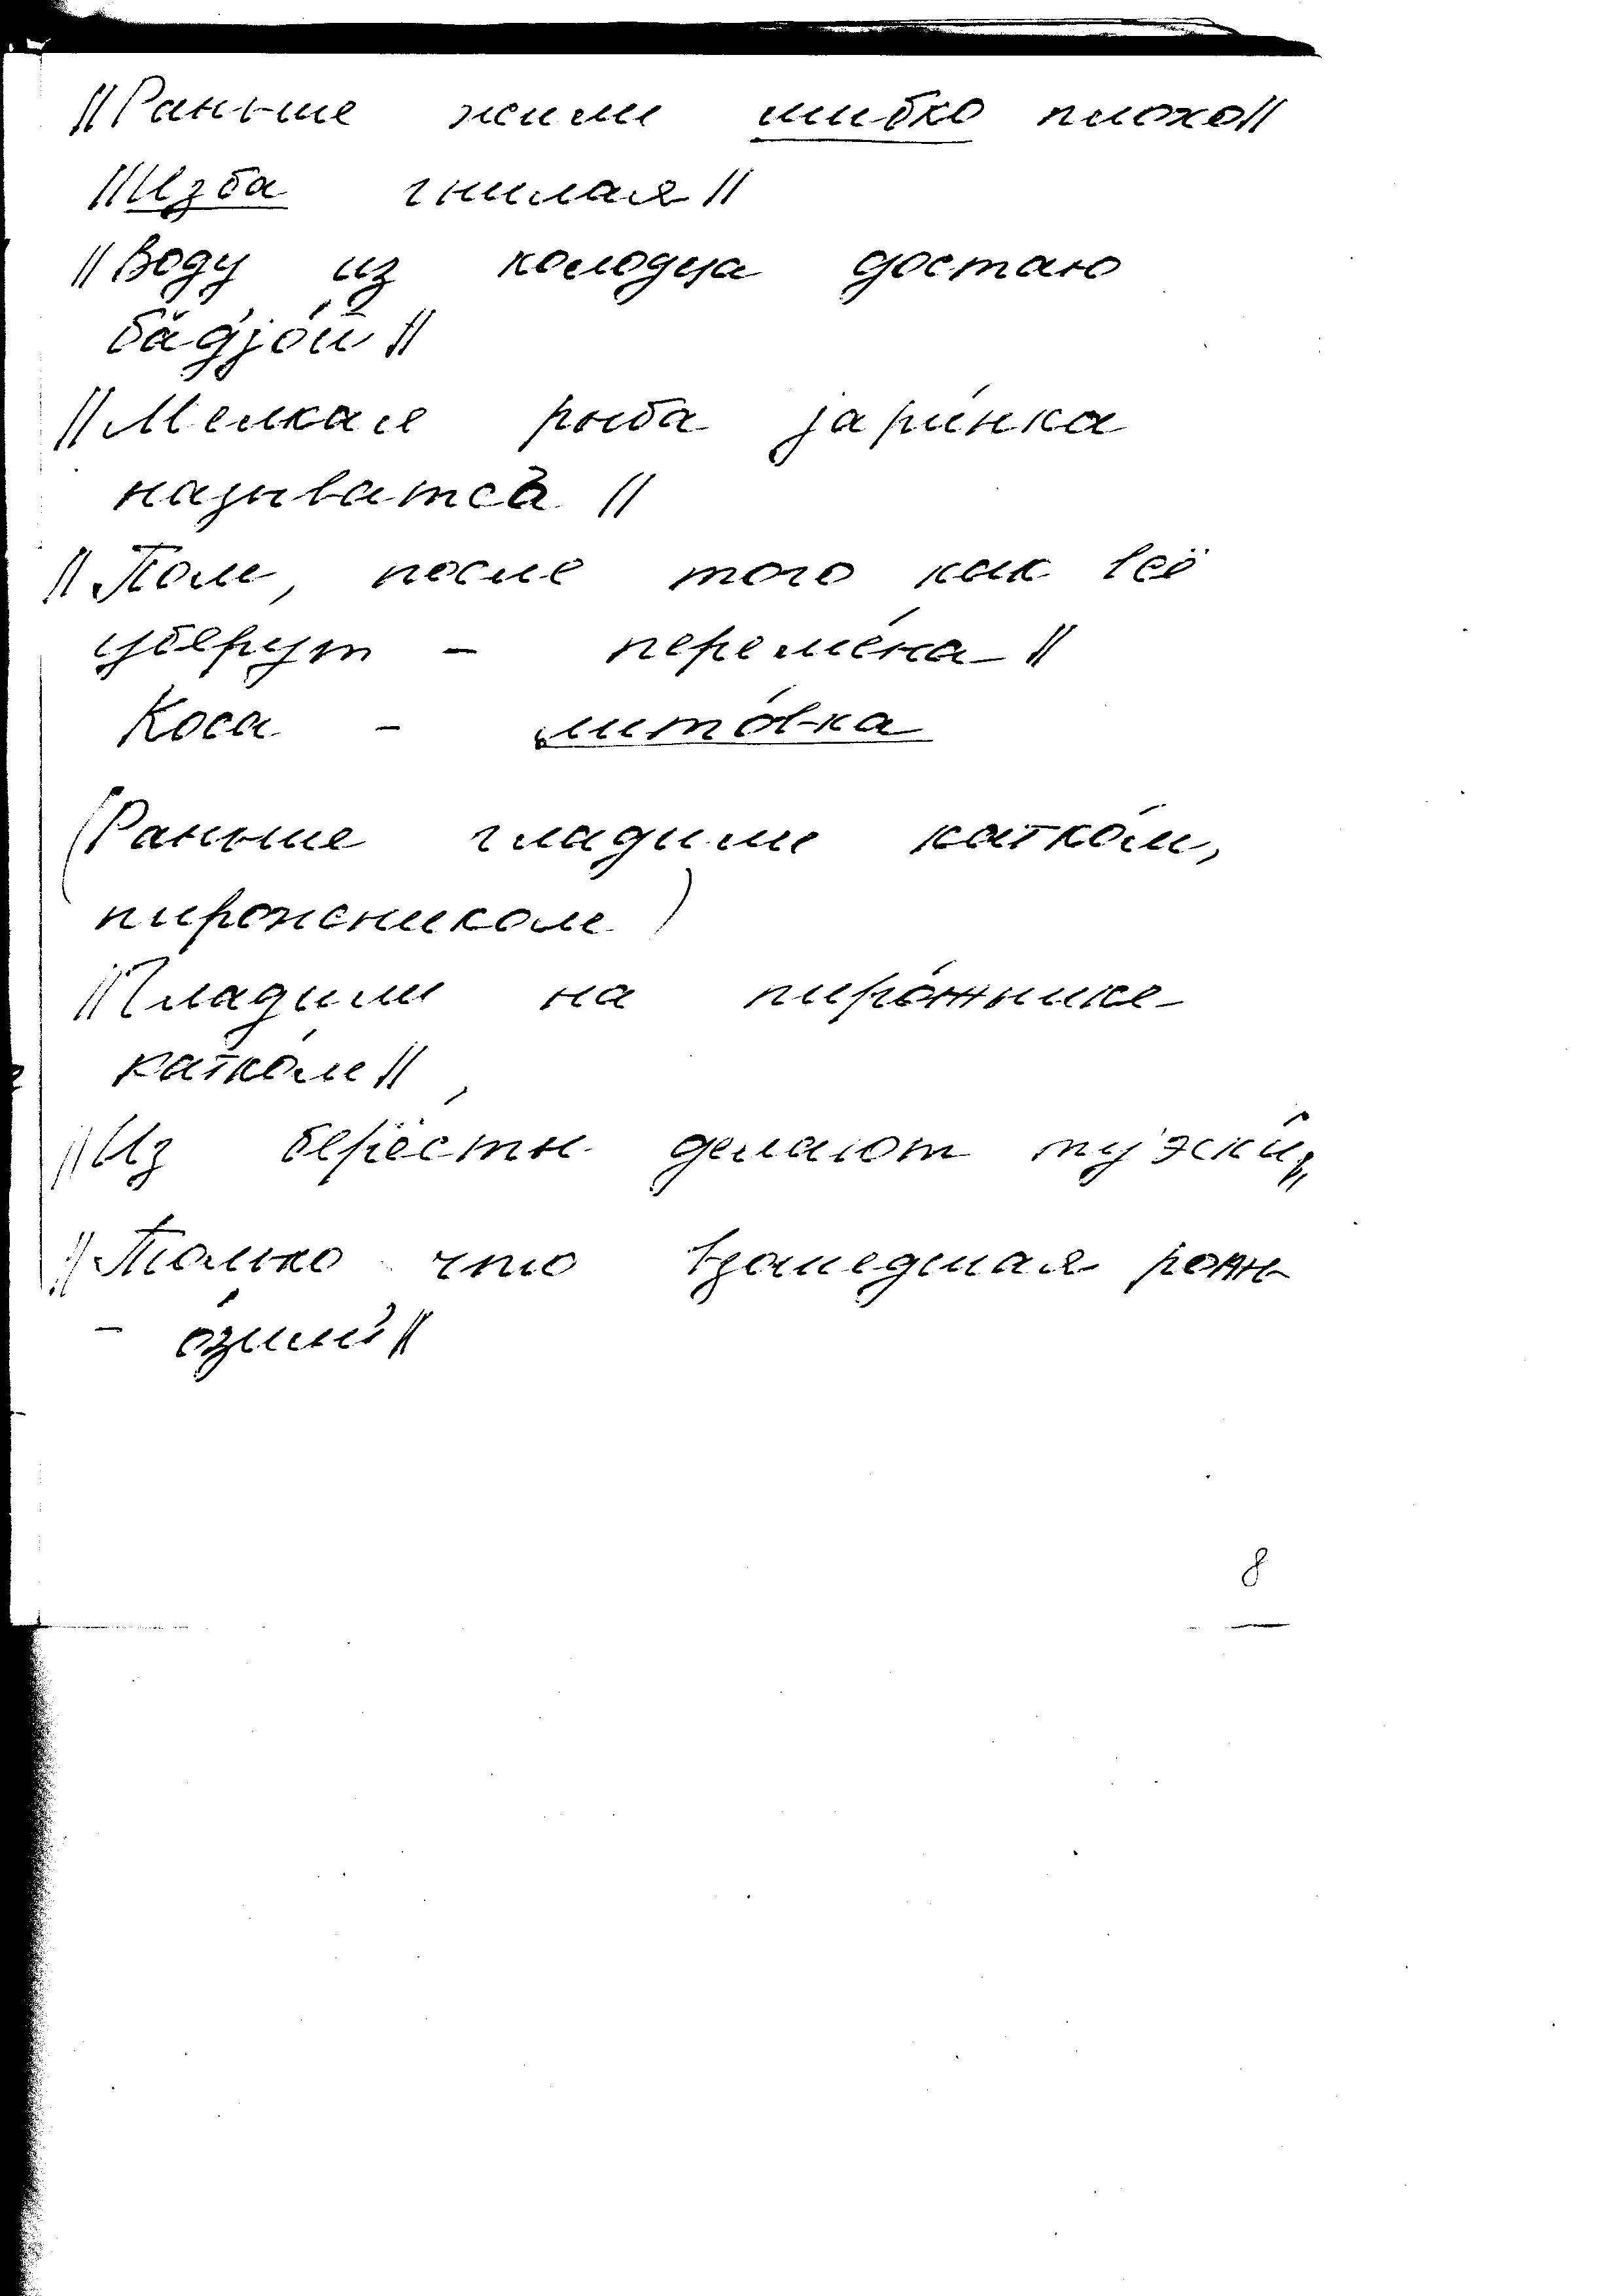 ||Раньше жили шибко плохо||
||Изба гнилая||
||Воду из колодца достаю
бад'jо́й||
||Мелкая рыба jари́нка
называтса ||
||Поле, после того как всё
уберут – переме́на||
Коса – лито́вка
(Раньше гладили катко́м,
пирожником)
||Гладили на пиро́жнике
катко́м||
||Из берёсты делают ту'эски́||
||Только что взошедшая рожь
– о́зимый||
8